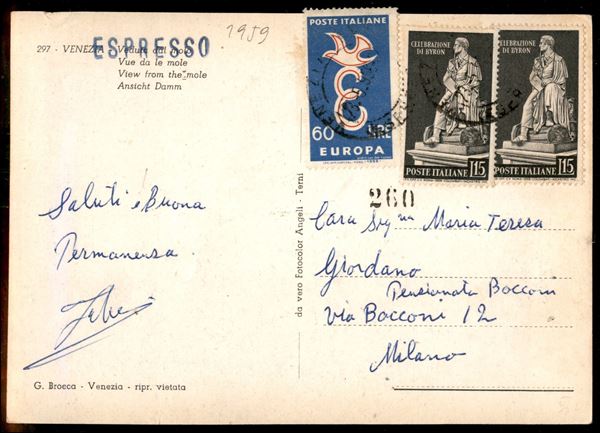 1959
297 - VENEZIA Veduta dal molo
ESPRESSO
Vue da le mole
View from the mole
Ansicht Damm
POSTE ITALIANE
60 LIRE
EUROPA
CELEBRAZIONE
DI BYRON
POSTE ITALIANE L15
CELEBRAZIONE
DI BYRON
POSTE ITALIANE L15
260
Saluti e Buona
Permanenza
Cara Sig.na Maria Teresa
Giordano
Pensionato Bocconi
via Bocconi 12
Milano
da vero Fotocolor Angeli - Terni
G. Brocca - Venezia - ripr. vietata